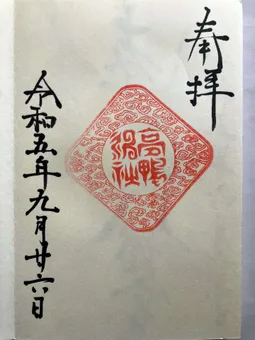 奉拝
高鴨
神社
令和五年九月廿六日